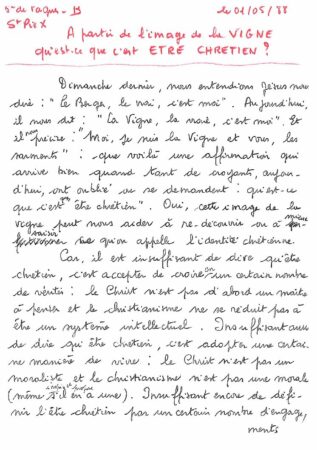 5e de Pâques - B
le 01/05/88
St Pie X
A partir de l'image de la VIGNE
qu'est-ce que c'est ETRE CHRETIEN ?
Dimanche dernier, nous entendions Jésus nous
dire : "le Berger, le vrai, c'est moi". Aujourd'hui,
il nous dit : "la Vigne, la vraie, c'est moi". Et
il nous précise : "Moi, je suis la Vigne et vous, les
sarments" : que voilà une affirmation qui
arrive bien quand tant de croyants, aujour-
d'hui, ont oublié ou se demandent : qu'est-ce
que c'est qu'être chrétien". Oui, cette image de la
vigne peut nous aider à re-découvrir ou à mieux
saisir ce qu'on appelle l'identité chrétienne.
Car, il est insuffisant de dire qu'être
chrétien, c'est accepter de croire en un certain nombre
de vérités : le Christ n'est pas d'abord un maître
à penser et le christianisme ne se réduit pas à
être un système intellectuel. Insuffisant aussi
de dire qu'être chrétien, c'est adopter une certai-
ne manière de vivre : le Christ n'est pas un
moraliste et le christianisme n'est pas une morale
(même s'il en a une). Insuffisant encore de défi-
nir l'être chrétien par un certain nombre d'engage-
ments